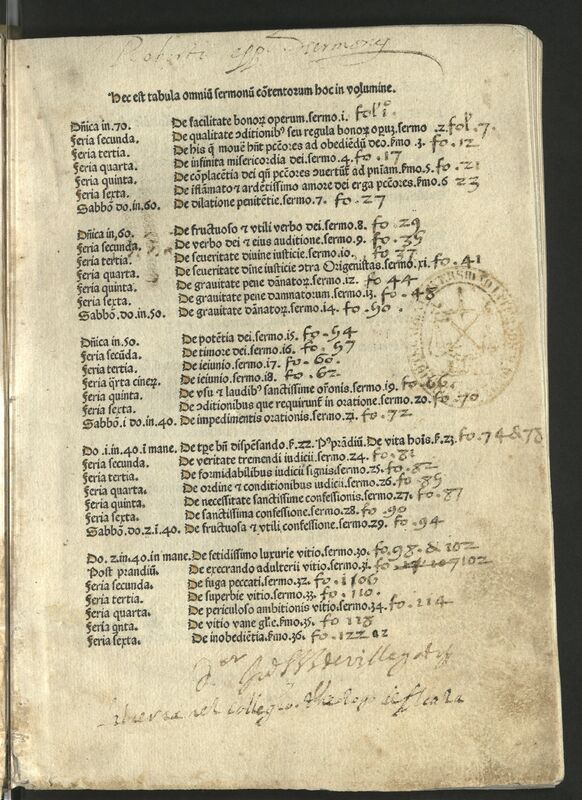 Roberti epi Sermones
Hec est tabula omniū sermonū cōtentorum hoc in volumine.
Dn̄ica in.70. De facilitate bonoꝝ operum.sermo.i. fol. i.
Feria secunda. De qualitate ꝯditionibꝰ seu regula bonoꝝ opuꝝ.sermo .2. fol. 7.
Feria tertia. De his q̄ mouēt pctōres ad obediēdū deo.ẜmo .3. fo. 12
Feria quarta. De infinita misericordia dei.sermo.4. fo. 17
Feria quinta. De cōplacētia dei qn̄ pctōres ꝯuertūt ad pniam.ẜmo.5. fo. 21
Feria sexta. De iflāmato ⁊ ardētissimo amore dei erga pctōres.ẜmo 6 23
Sabbō do.in.60. De dilatione penitētie.sermo.7. fo. 27
Dn̄ica in.60. De fructuoso ⁊ vtili verbo dei.sermo.8. fo. 29
Feria secunda. De verbo dei ⁊ eius auditione.sermo.9. fo. 35
Feria tertia. De seueritate diuine iusticie.sermo.10. fo. 37
Feria quarta. De seueritate diuīne iusticie ꝯtra Origenistas.sermo.xi. fo. 41
Feria quinta. De grauitate pene dānatoꝝ.sermo.12. fo. 44
Feria sexta. De grauitate pene dannatorum.sermo.13. fo. 48
Sabbō.do.in.50. De grauitate dānatoꝝ.sermo.14. fo. 50.
Dn̄ica in.50. De potētia dei.sermo.15. fo. 54
Feria secūda. De timore dei.sermo.16. fo. 57
Feria tertia. De ieiunio.sermo.17. fo. 60.
Feria q̄rta cineꝝ. De ieiunio.sermo.18. fo. 62
Feria quinta. De vsu ⁊ laudibꝰ sanctissime orōnis.sermo.19. fo. 66.
Feria sexta. De ꝯditionibus que requirunt̄ in oratione.sermo.20. fo. 70
Sabbō.i do.in.40. De impedimentis orationis.sermo.21. fo. 72
Do.i.in.40.ī mane. De tꝑe bn̄ dispēsando.ẜ.22. Pꝰprādiū.De vita hoīs.ẜ.23. fo. 74 & 78
Feria secunda. De veritate tremendi iudicii.sermo.24. fo. 81
Feria tertia. De formidabilibus iudicii signis.sermo.25. fo. 82
Feria quarta. De ordine ⁊ conditionibus iudicii.sermo.26. fo. 85
Feria quinta. De necessitate sanctissime confessionis.sermo.27. fo. 87
Feria sexta. De sanctissima confessione.sermo.28. fo. 90
Sabbō.do.2.ī.40. De fructuosa ⁊ vtili confessione.sermo.29. fo. 94
Do.2.in.40.in mane. De fetidissimo luxurie vitio.sermo.30. fo. 98. & 102
Post prandiū. De execrando adulterii vitio.sermo.31. fo. 102
Feria secunda. De fuga peccati.sermo.32. fo. 106
Feria tertia. De superbie vitio.sermo.33. fo. 110.
Feria quarta. De periculoso ambitionis vitio.sermo.34. fo. 114
Feria q̄nta. De vitio vane gl̄ie.ẜmo.35. fo 118
Feria sexta. De inobediētia.ẜmo.36. fo. 122